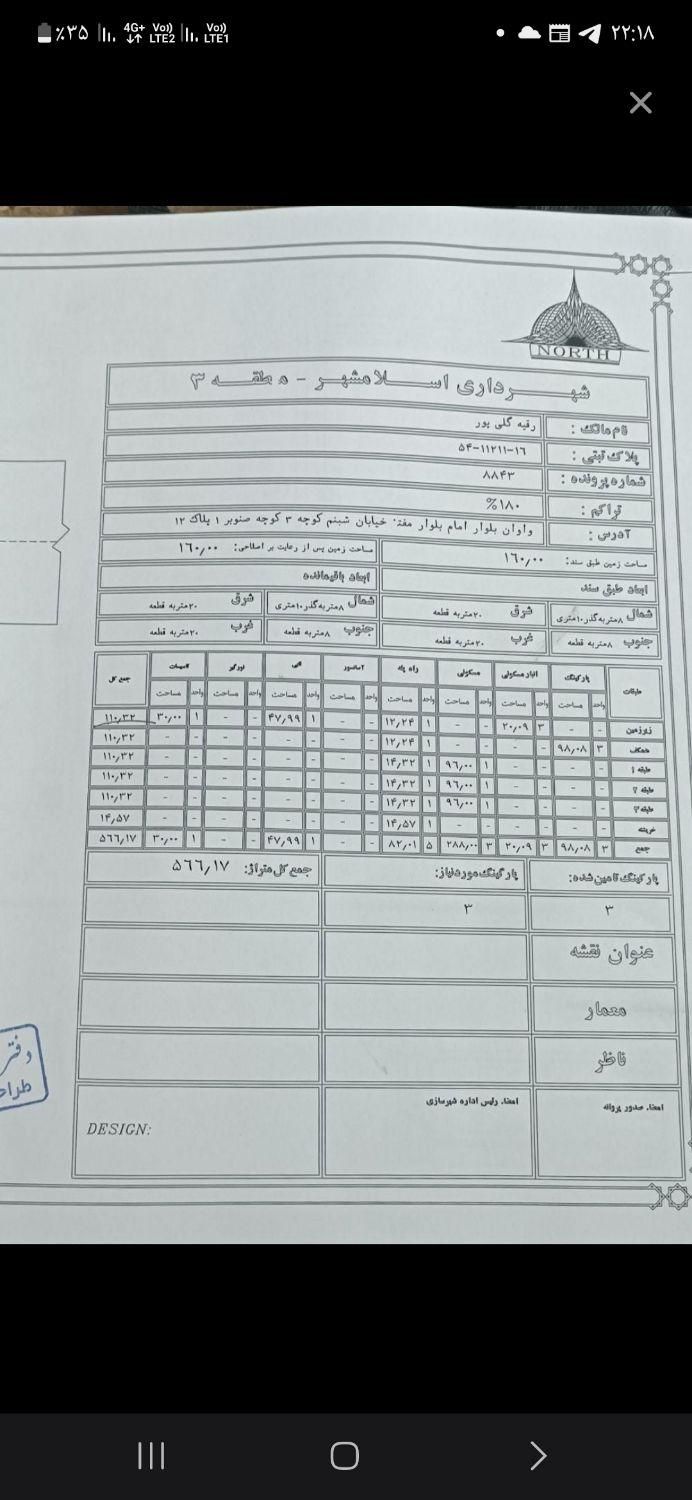 ٪۳۵ 4G+ Vo)) LTE2 Vo)) LTE1 ۲۲:۱۸
NORTH
شهرداری اسلامشهر - منطقه ۳
نام مالک : رقیه گلی پور
پلاک ثبتی : ۵۴-۱۱۲۱۱-۱۶
شماره پرونده : ۸۸۴۳
تراکم : %۱۸۰
آدرس : واوان بلوار امام بلوار مفتح خیابان شبنم کوچه ۳ کوچه صنوبر ۱ پلاک ۱۲
مساحت زمین طبق سند: ۱۶۰٫۰۰ مساحت زمین پس از رعایت بر اصلاحی: ۱۶۰٫۰۰
ابعاد طبق سند ابعاد باقیمانده
شمال ۸متربه گذر۱۰متری شرق ۲۰متربه قطعه شمال ۸متربه گذر۱۰متری شرق ۲۰متربه قطعه
جنوب ۸متربه قطعه غرب ۲۰متربه قطعه جنوب ۸متربه قطعه غرب ۲۰متربه قطعه
طبقات پارکینگ انبار مسکونی مسکونی راه پله آسانسور لابی نورگیر تاسیسات جمع کل
واحد مساحت واحد مساحت واحد مساحت واحد مساحت واحد مساحت واحد مساحت واحد مساحت واحد مساحت
زیرزمین - - ۳ ۲۰٫۰۹ - - ۱ ۱۲٫۲۴ - - ۱ ۴۷٫۹۹ - - ۱ ۳۰٫۰۰ ۱۱۰٫۳۲
همکف ۳ ۹۸٫۰۸ - - - - ۱ ۱۲٫۲۴ - - - - - - - - ۱۱۰٫۳۲
طبقه ۱ - - - - ۱ ۹۶٫۰۰ ۱ ۱۴٫۳۲ - - - - - - - - ۱۱۰٫۳۲
طبقه ۲ - - - - ۱ ۹۶٫۰۰ ۱ ۱۴٫۳۲ - - - - - - - - ۱۱۰٫۳۲
طبقه ۳ - - - - ۱ ۹۶٫۰۰ ۱ ۱۴٫۳۲ - - - - - - - - ۱۱۰٫۳۲
خرپشته - - - - - - ۱ ۱۴٫۵۷ - - - - - - - - ۱۴٫۵۷
جمع ۳ ۹۸٫۰۸ ۳ ۲۰٫۰۹ ۳ ۲۸۸٫۰۰ ۵ ۸۲٫۰۱ - - ۱ ۴۷٫۹۹ - - ۱ ۳۰٫۰۰ ۵۶۶٫۱۷
پارکینگ تامین شده: پارکینگ مورد نیاز: جمع کل متراژ: ۵۶۶٫۱۷
۳ ۳
عنوان نقشه
معمار
ناظر
امضاء صدور پروانه امضاء رئیس اداره شهرسازی
DESIGN:
دفتر